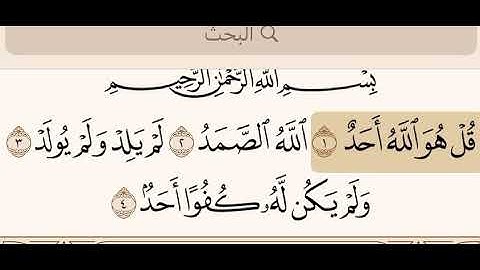 البحث
بِسْمِ اللَّهِ الرَّحْمَٰنِ الرَّحِيمِ
قُلْ هُوَ اللَّهُ أَحَدٌ ١ اللَّهُ الصَّمَدُ ٢ لَمْ يَلِدْ وَلَمْ يُولَدْ ٣
وَلَمْ يَكُن لَّهُۥ كُفُوًا أَحَدٌۢ ٤